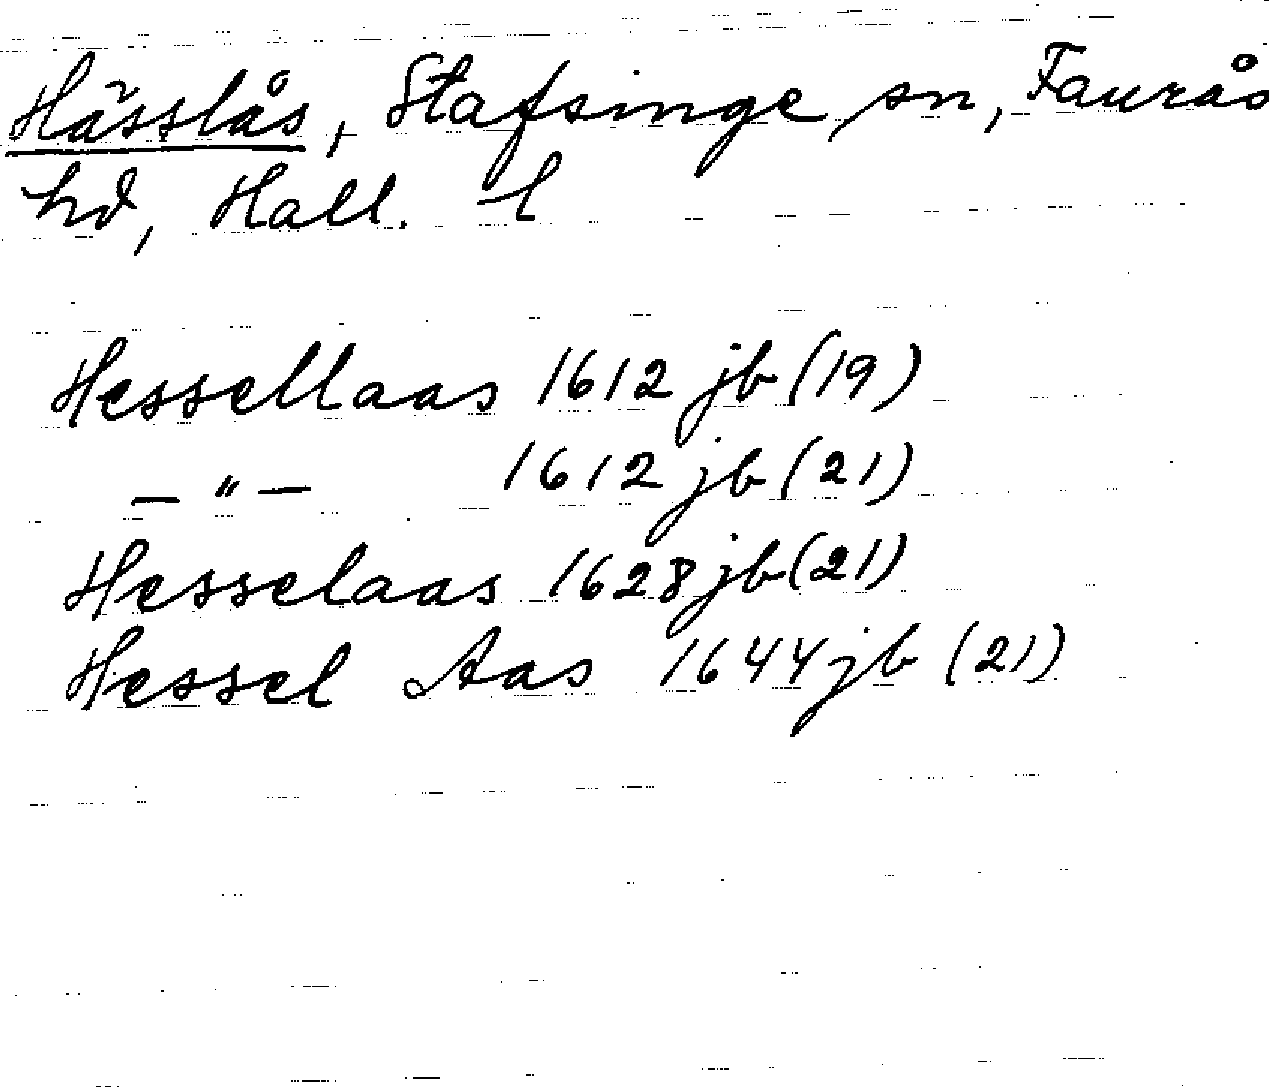 Hässlås, Stafsinge sn, Faurås
hd, Hall. l
Hessellaas 1612 jb (19)
— " — 1612 jb (21)
Hesselaas 1628 jb (21)
Hessel Aas 1644 jb (21)